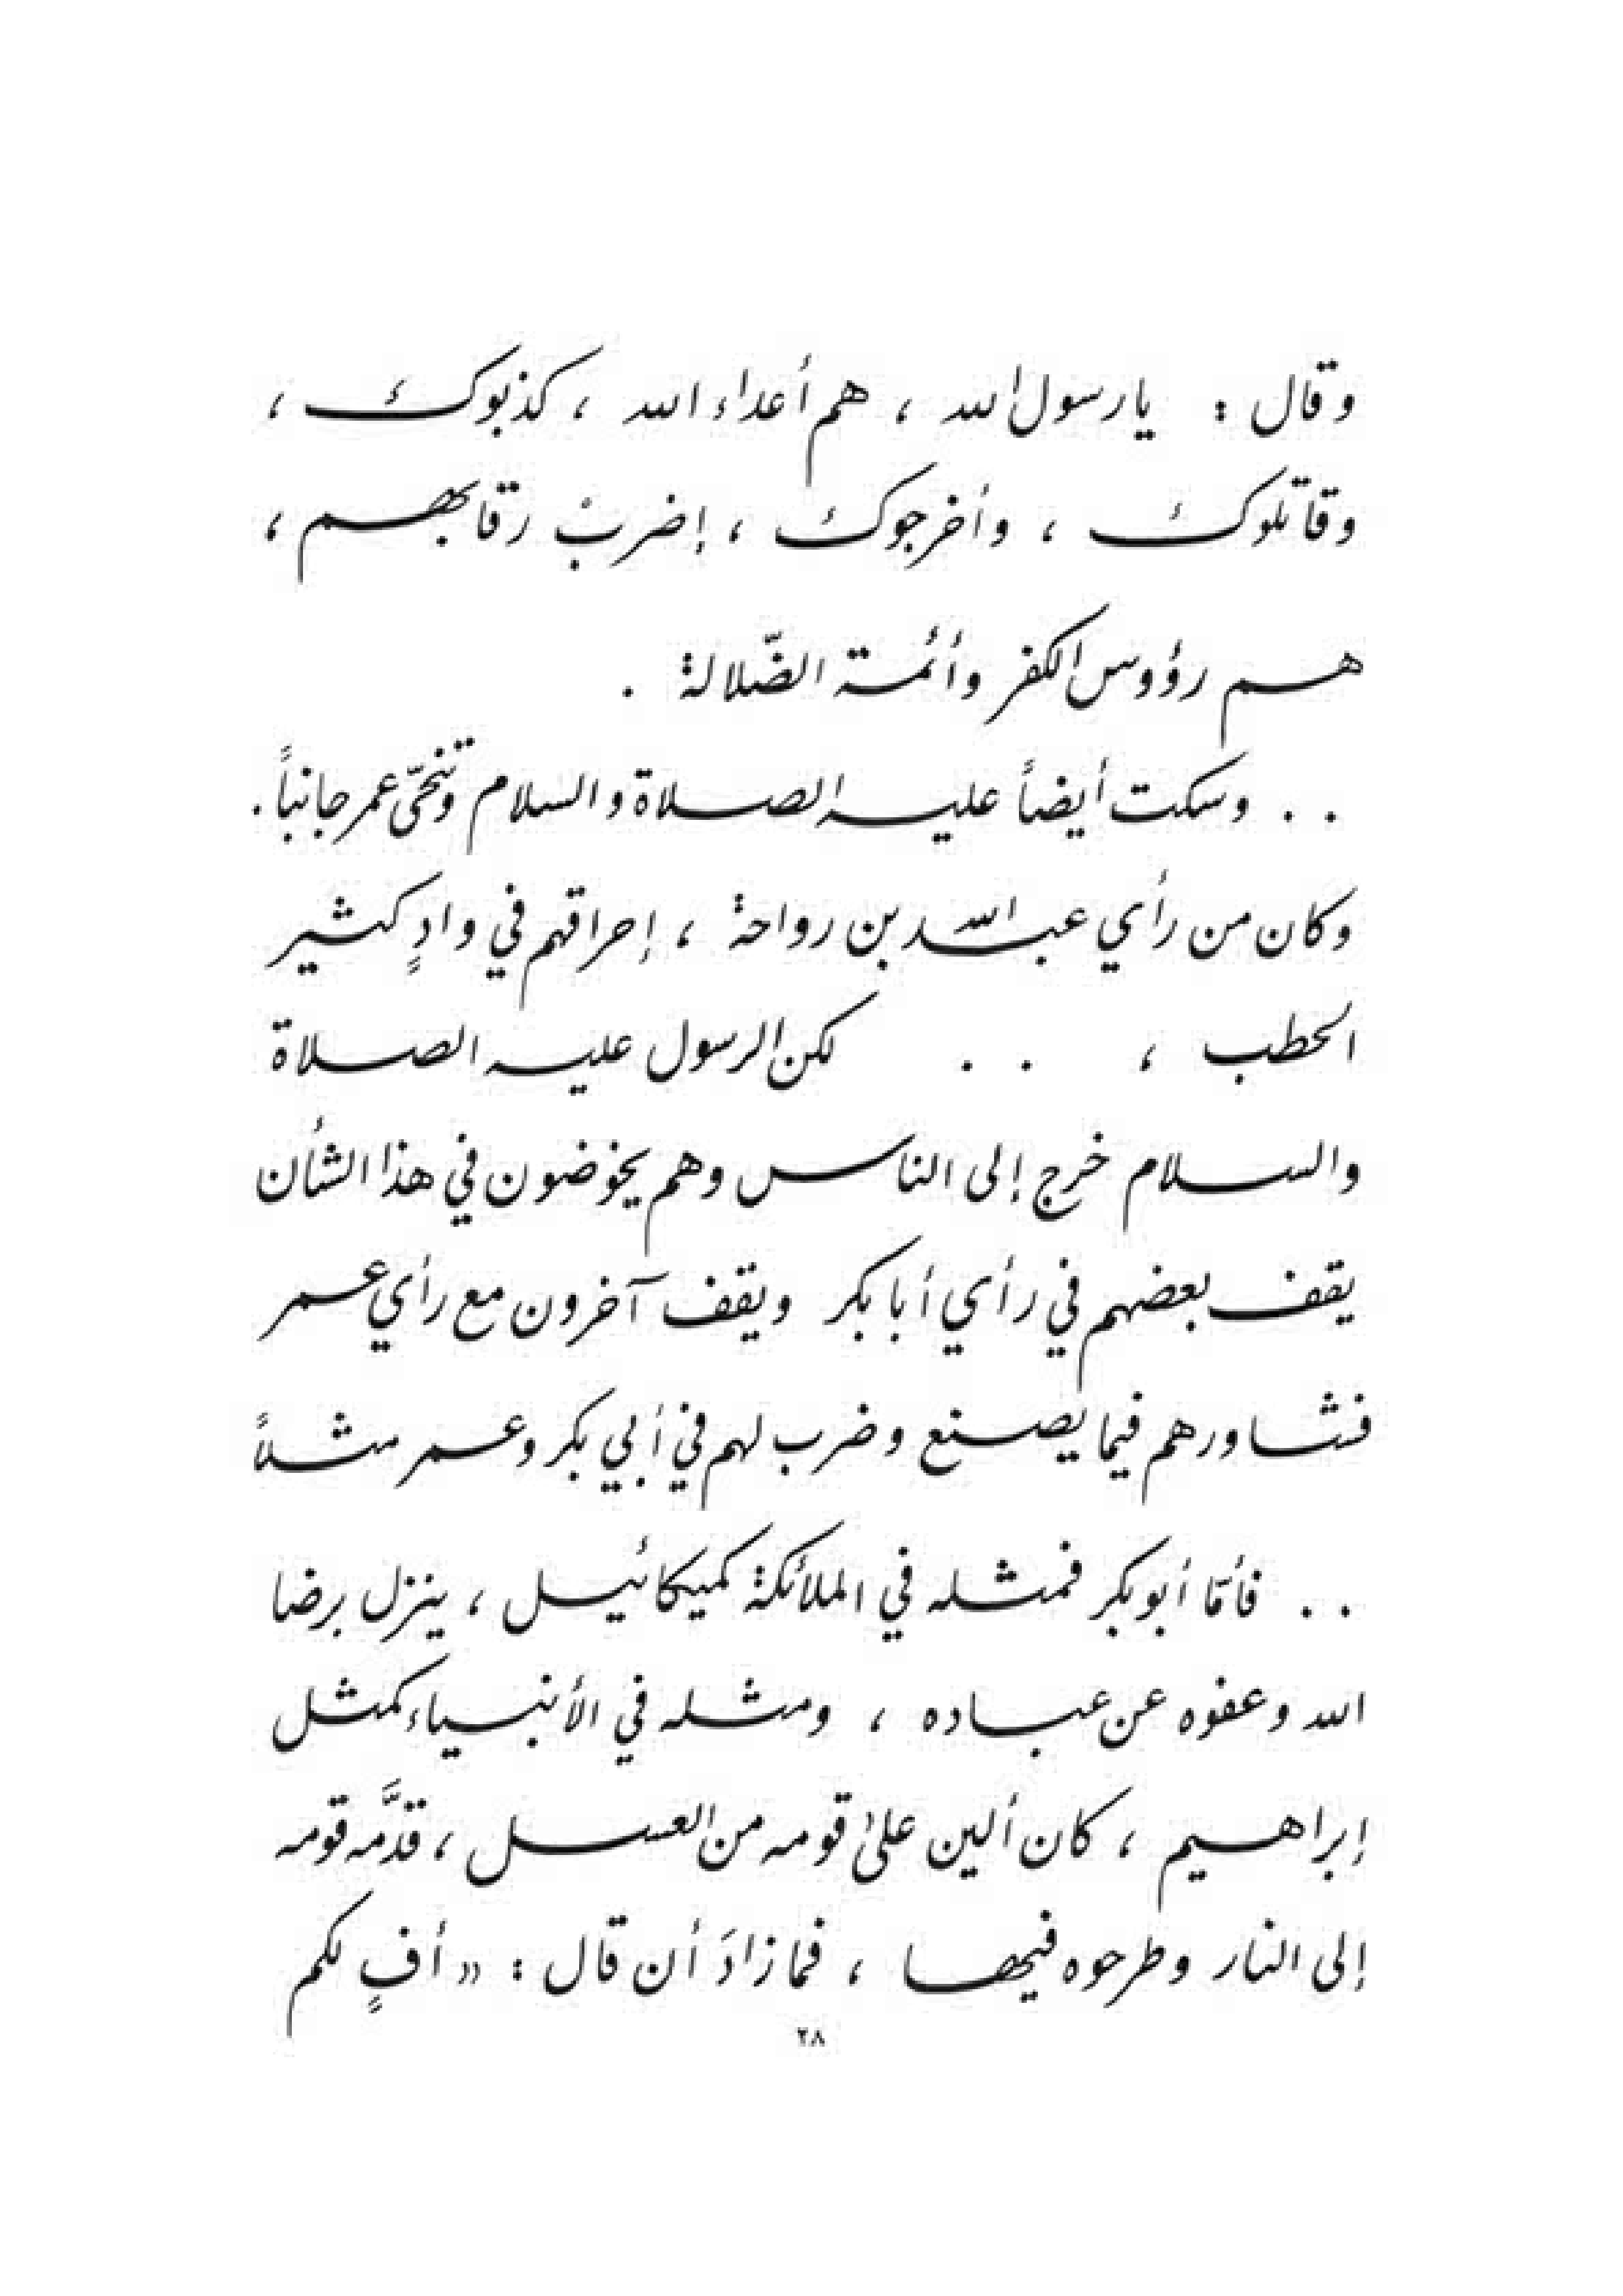 وقال : يا رسول الله ، هم أعداء الله ، كذبوك ،
وقاتلوك ، وأخرجوك ، إضربْ رقابهم ،
هم رؤوس الكفر وأئمة الضّلالة .
. . وسكت أيضاً عليه الصلاة والسلام وتنحّى عمر جانباً .
وكان من رأي عبد الله بن رواحة ، إحراقهم في وادٍ كثير
الحطب ، . . لكن الرسول عليه الصلاة
والسلام خرج إلى الناس وهم يخوضون في هذا الشأن
يقف بعضهم في رأي أبا بكر ويقف آخرون مع رأي عمر
فشاورهم فيما يصنع وضرب لهم في أبي بكر وعمر مثلاً
. . فأمّا أبو بكر فمثله في الملائكة كميكائيل ، ينزل برضا
الله وعفوه عن عباده ، ومثله في الأنبياء كمثل
إبراهيم ، كان ألين على قومه من العسل ، قدَّمه قومه
إلى النار وطرحوه فيها ، فما زادَ أن قال : « أفٍ لكم
٢٨